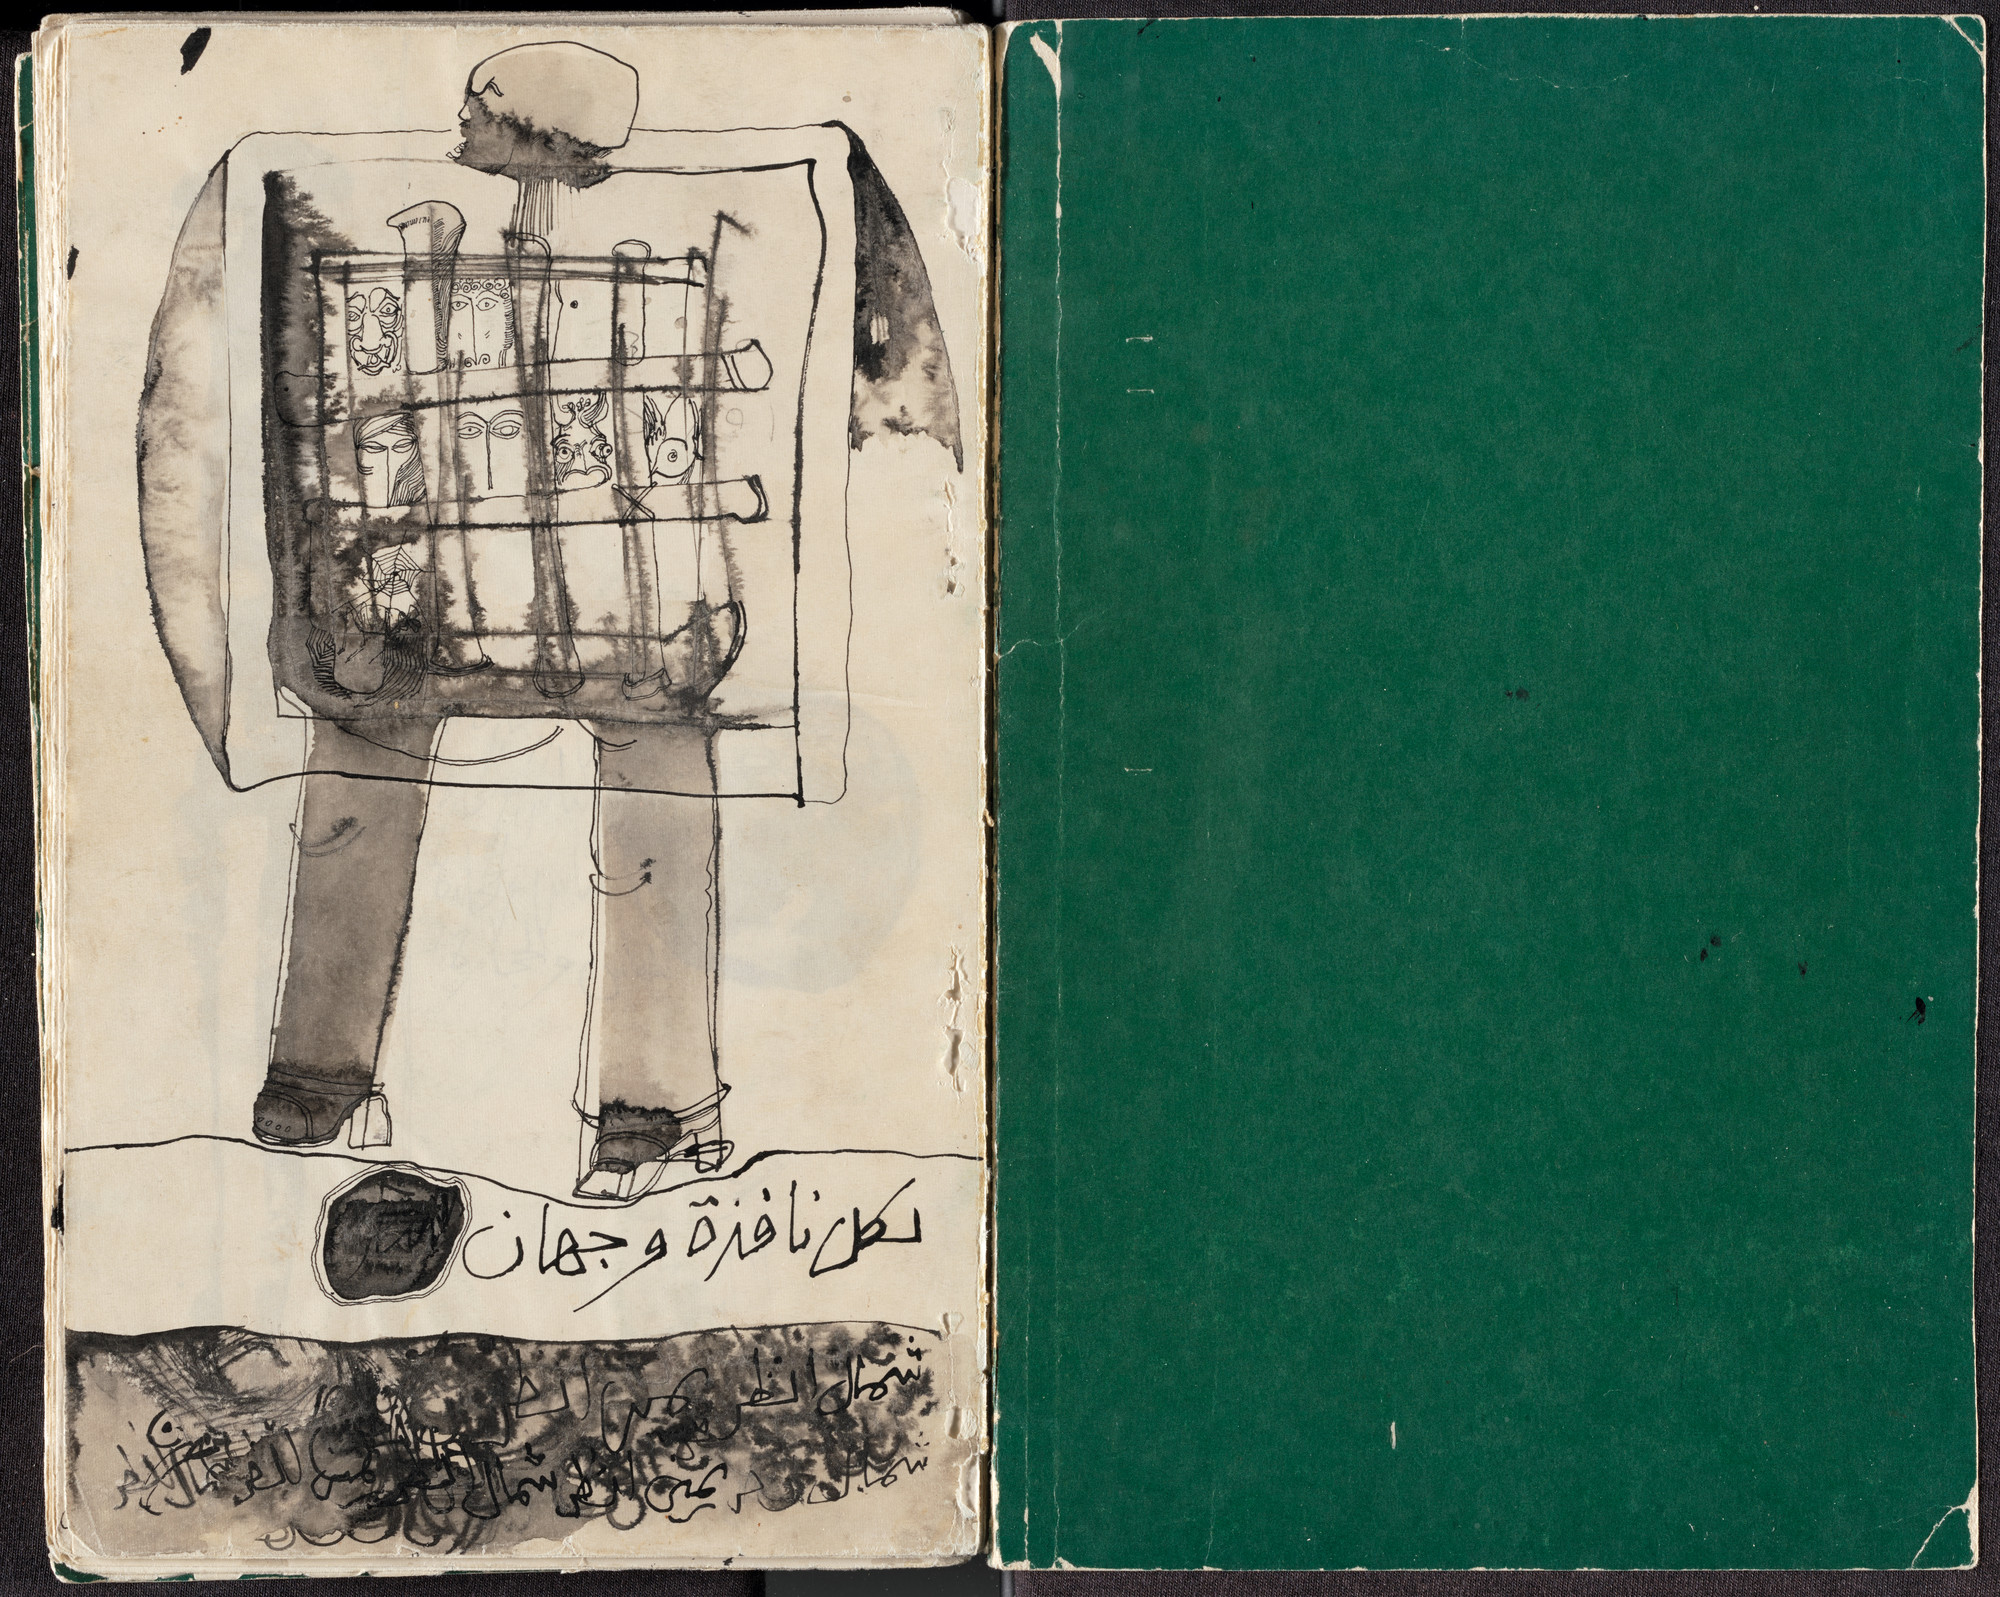 لكل نافذة وجهان
شمال انظر يمين انظر
شمال يمين انظر شمال انظر يمين انظر شمال انظر